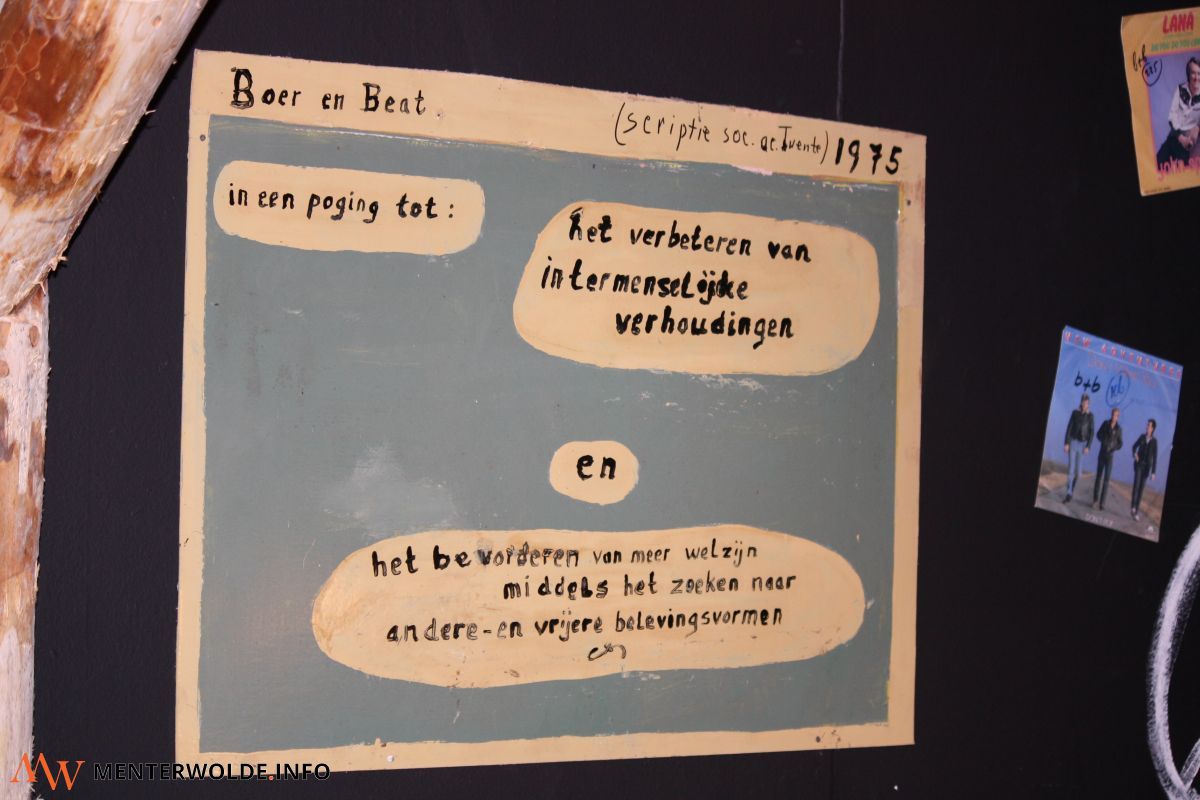 Boer en Beat
(scriptie soc. ac. Twente) 1975
in een poging tot:
het verbeteren van
intermenselijke
verhoudingen
en
het bevorderen van meer welzijn
middels het zoeken naar
andere-en vrijere belevingsvormen
LANA
b+b
NEW ADVENTURES
b+b
MW MENTERWOLDE.INFO